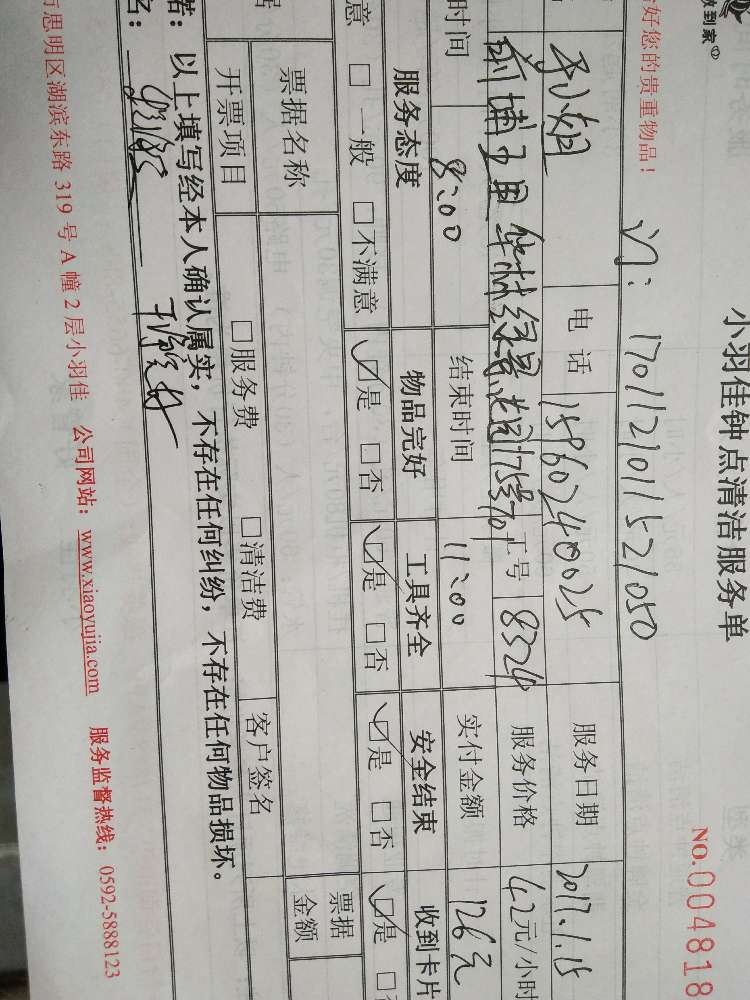 收到家
小羽佳钟点清洁服务单
NO.004818
好您的贵重物品！
订：1701121011521050
小姐 电话 15960240025 服务日期 2017.1.15
埔 里 华林绿景 175号701 工号 8324 服务价格 42元/小时
时间 8:00 结束时间 11:00 实付金额 126元
服务态度 物品完好 工具齐全 安全结束 收到卡片
意 □一般 □不满意 ☑是 □否 ☑是 □否 ☑是 □否 ☑是 □
票据名称 票据金额
开票项目 □服务费 □清洁费 客户签名
诺：以上填写经本人确认属实，不存在任何纠纷，不存在任何物品损坏。
名：
思明区湖滨东路 319 号 A 幢 2 层小羽佳 公司网站：www.xiaoyujia.com 服务监督热线：0592-5888123